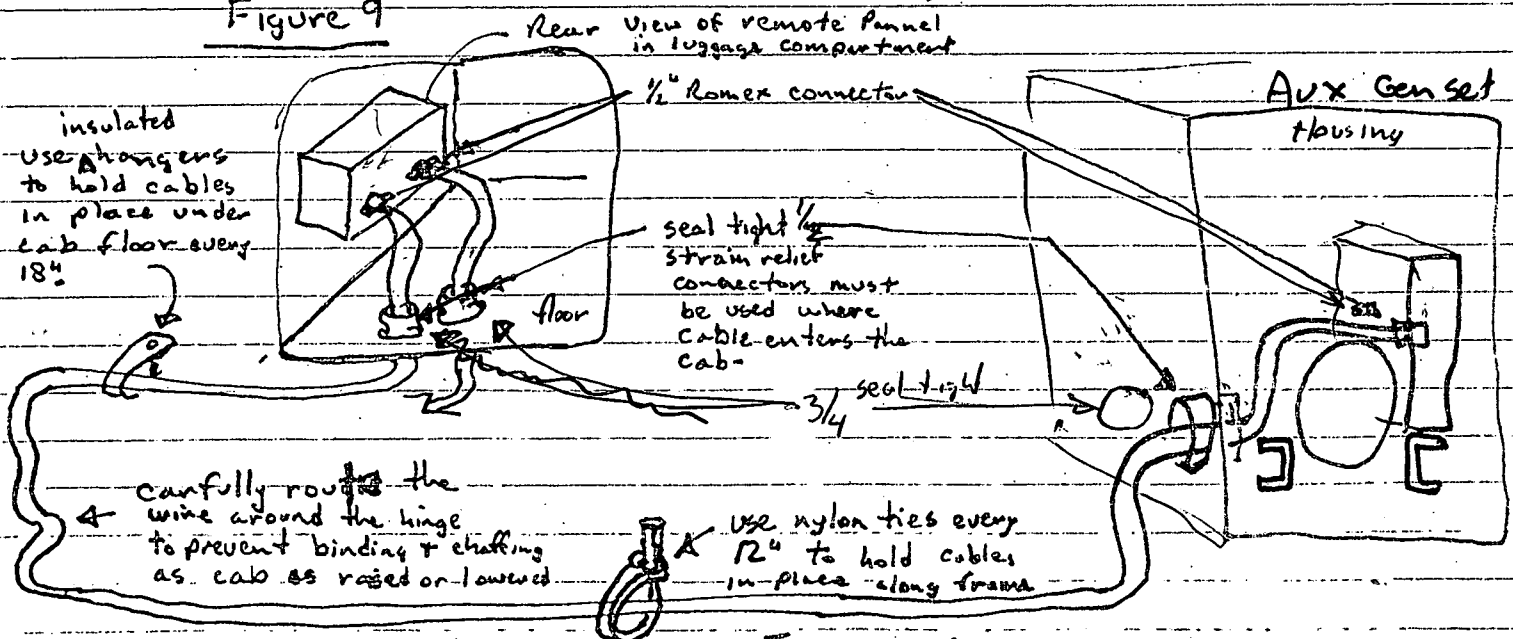 Figure 9
Rear view of remote Pannel
in luggage compartment
1/2" Romex connector
Aux Gen set
Housing
insulated
use hangers
to hold cables
in place under
cab floor every
18"
seal tight 1/2
strain relief
connectors must
be used where
cable enters the
cab-
floor
3/4 seal tight
carfully route the
wire around the hinge
to prevent binding + chaffing
as cab is rased or lowered
use nylon ties every
12" to hold cables
in place along frame